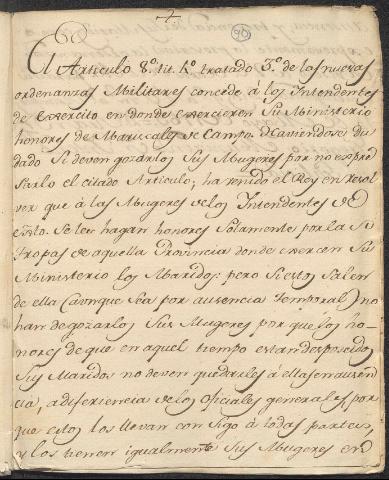 90
El Articulo 8.º tit. 1.º tratado 3.º de las nuevas
ordenanzas Militares concede à los Intendentes
de Exercito en donde exercieren Su Ministerio
honores de Mariscales de Campo. Y haviendose du
dado Si deven gozarlos Sus Mugeres por no expre
sarlo el citado Articulo; ha venido el Rey en resol
ver que à las Mugeres de los Intendentes de Ex
ercito Se les hagan honores Solamente por la
Tropas de aquella Provincia donde exercen Su
Ministerio los Maridos: pero Si estos Salen
de ella (aunque Sea por ausencia temporal) no
han de gozarlos Sus Mugeres por que los ho=
nores de que en aquel tiempo estan desposeidos
Sus Maridos no deven quedarles à ellas en ausen
cia, a diferiencia de los Oficiales generales por
que estos los llevan con sigo à todas partes,
y los tienen igualmente Sus Mugeres en